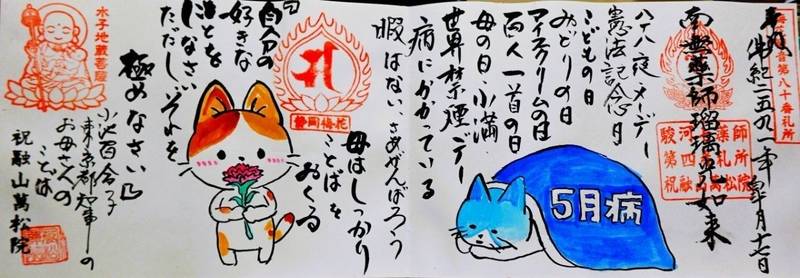 奉拝
南無薬師瑠璃光如来
八十八夜メーデー
憲法記念日
みどりの日
こどもの日
アイスクリームの日
百人一首の日
母の日・小満
世界禁煙デー
病にかかっている
暇はない、さあがんばろう
5月病
母はしっかり
ことばを
おくる
『自分の
好きな
ことを
になさい
ただし、それを
極めなさい』
小池百合子
東京都知事の
お母さんの
ことば
祝融山萬松院
水子地蔵菩薩
静岡梅花
駿河薬師
第四番札所
祝融山萬松院